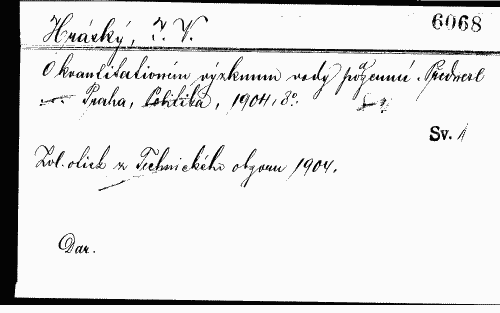 6068
Hráský, J. V.
O kvantitativním výzkumu vody podzemní. Přednesl
Praha, Politika, 1904, 8°.
Sv. 1
Zvl. otisk z Technického obzoru 1904.
Dar.